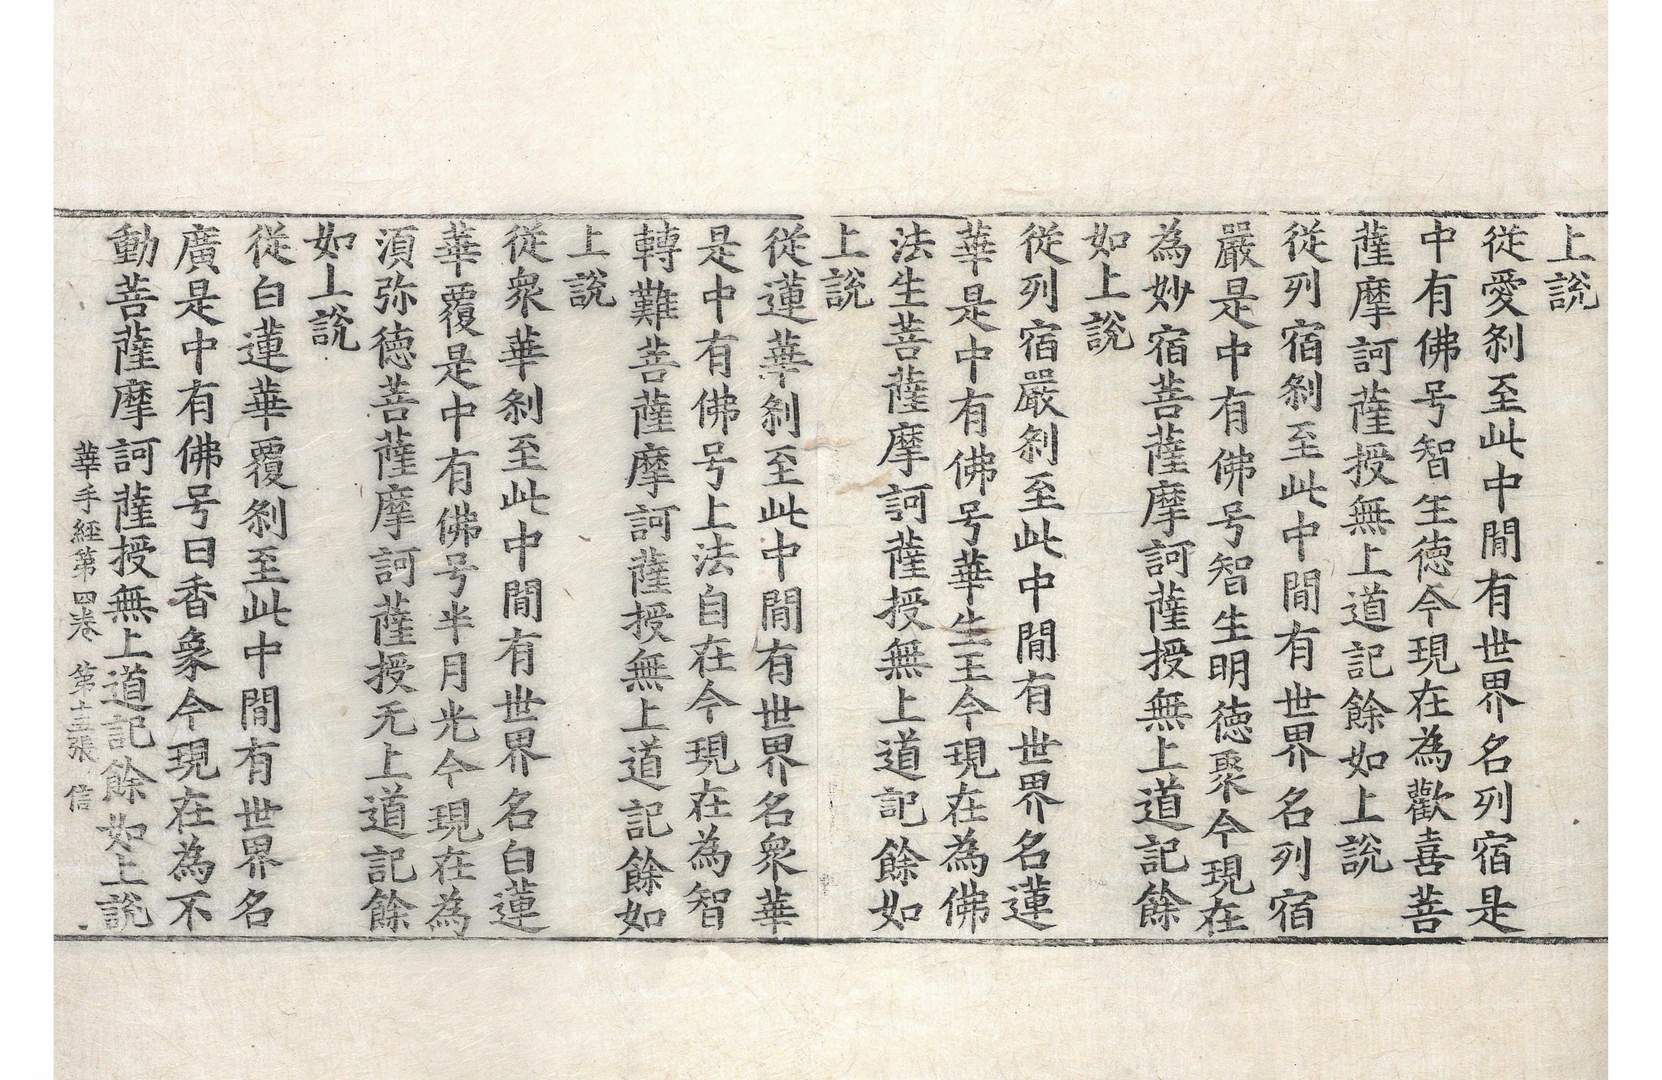 上說
從愛剎至此中閒有世界名列宿是
中有佛号智生徳今現在為歡喜菩
薩摩訶薩授無上道記餘如上說
從列宿剎至此中閒有世界名列宿
嚴是中有佛号智生明徳聚今現在
為妙宿菩薩摩訶薩授無上道記餘
如上說
從列宿嚴剎至此中閒有世界名蓮
華是中有佛号華生王今現在為佛
法生菩薩摩訶薩授無上道記餘如
上說
從蓮華剎至此中閒有世界名衆華
是中有佛号上法自在今現在為智
轉難菩薩摩訶薩授無上道記餘如
上說
從衆華剎至此中閒有世界名白蓮
華覆是中有佛号半月光今現在為
湏弥徳菩薩摩訶薩授无上道記餘
如上說
從白蓮華覆剎至此中閒有世界名
廣是中有佛号曰香象今現在為不
動菩薩摩訶薩授無上道記餘如上說
華手経第四卷 第十五張 信